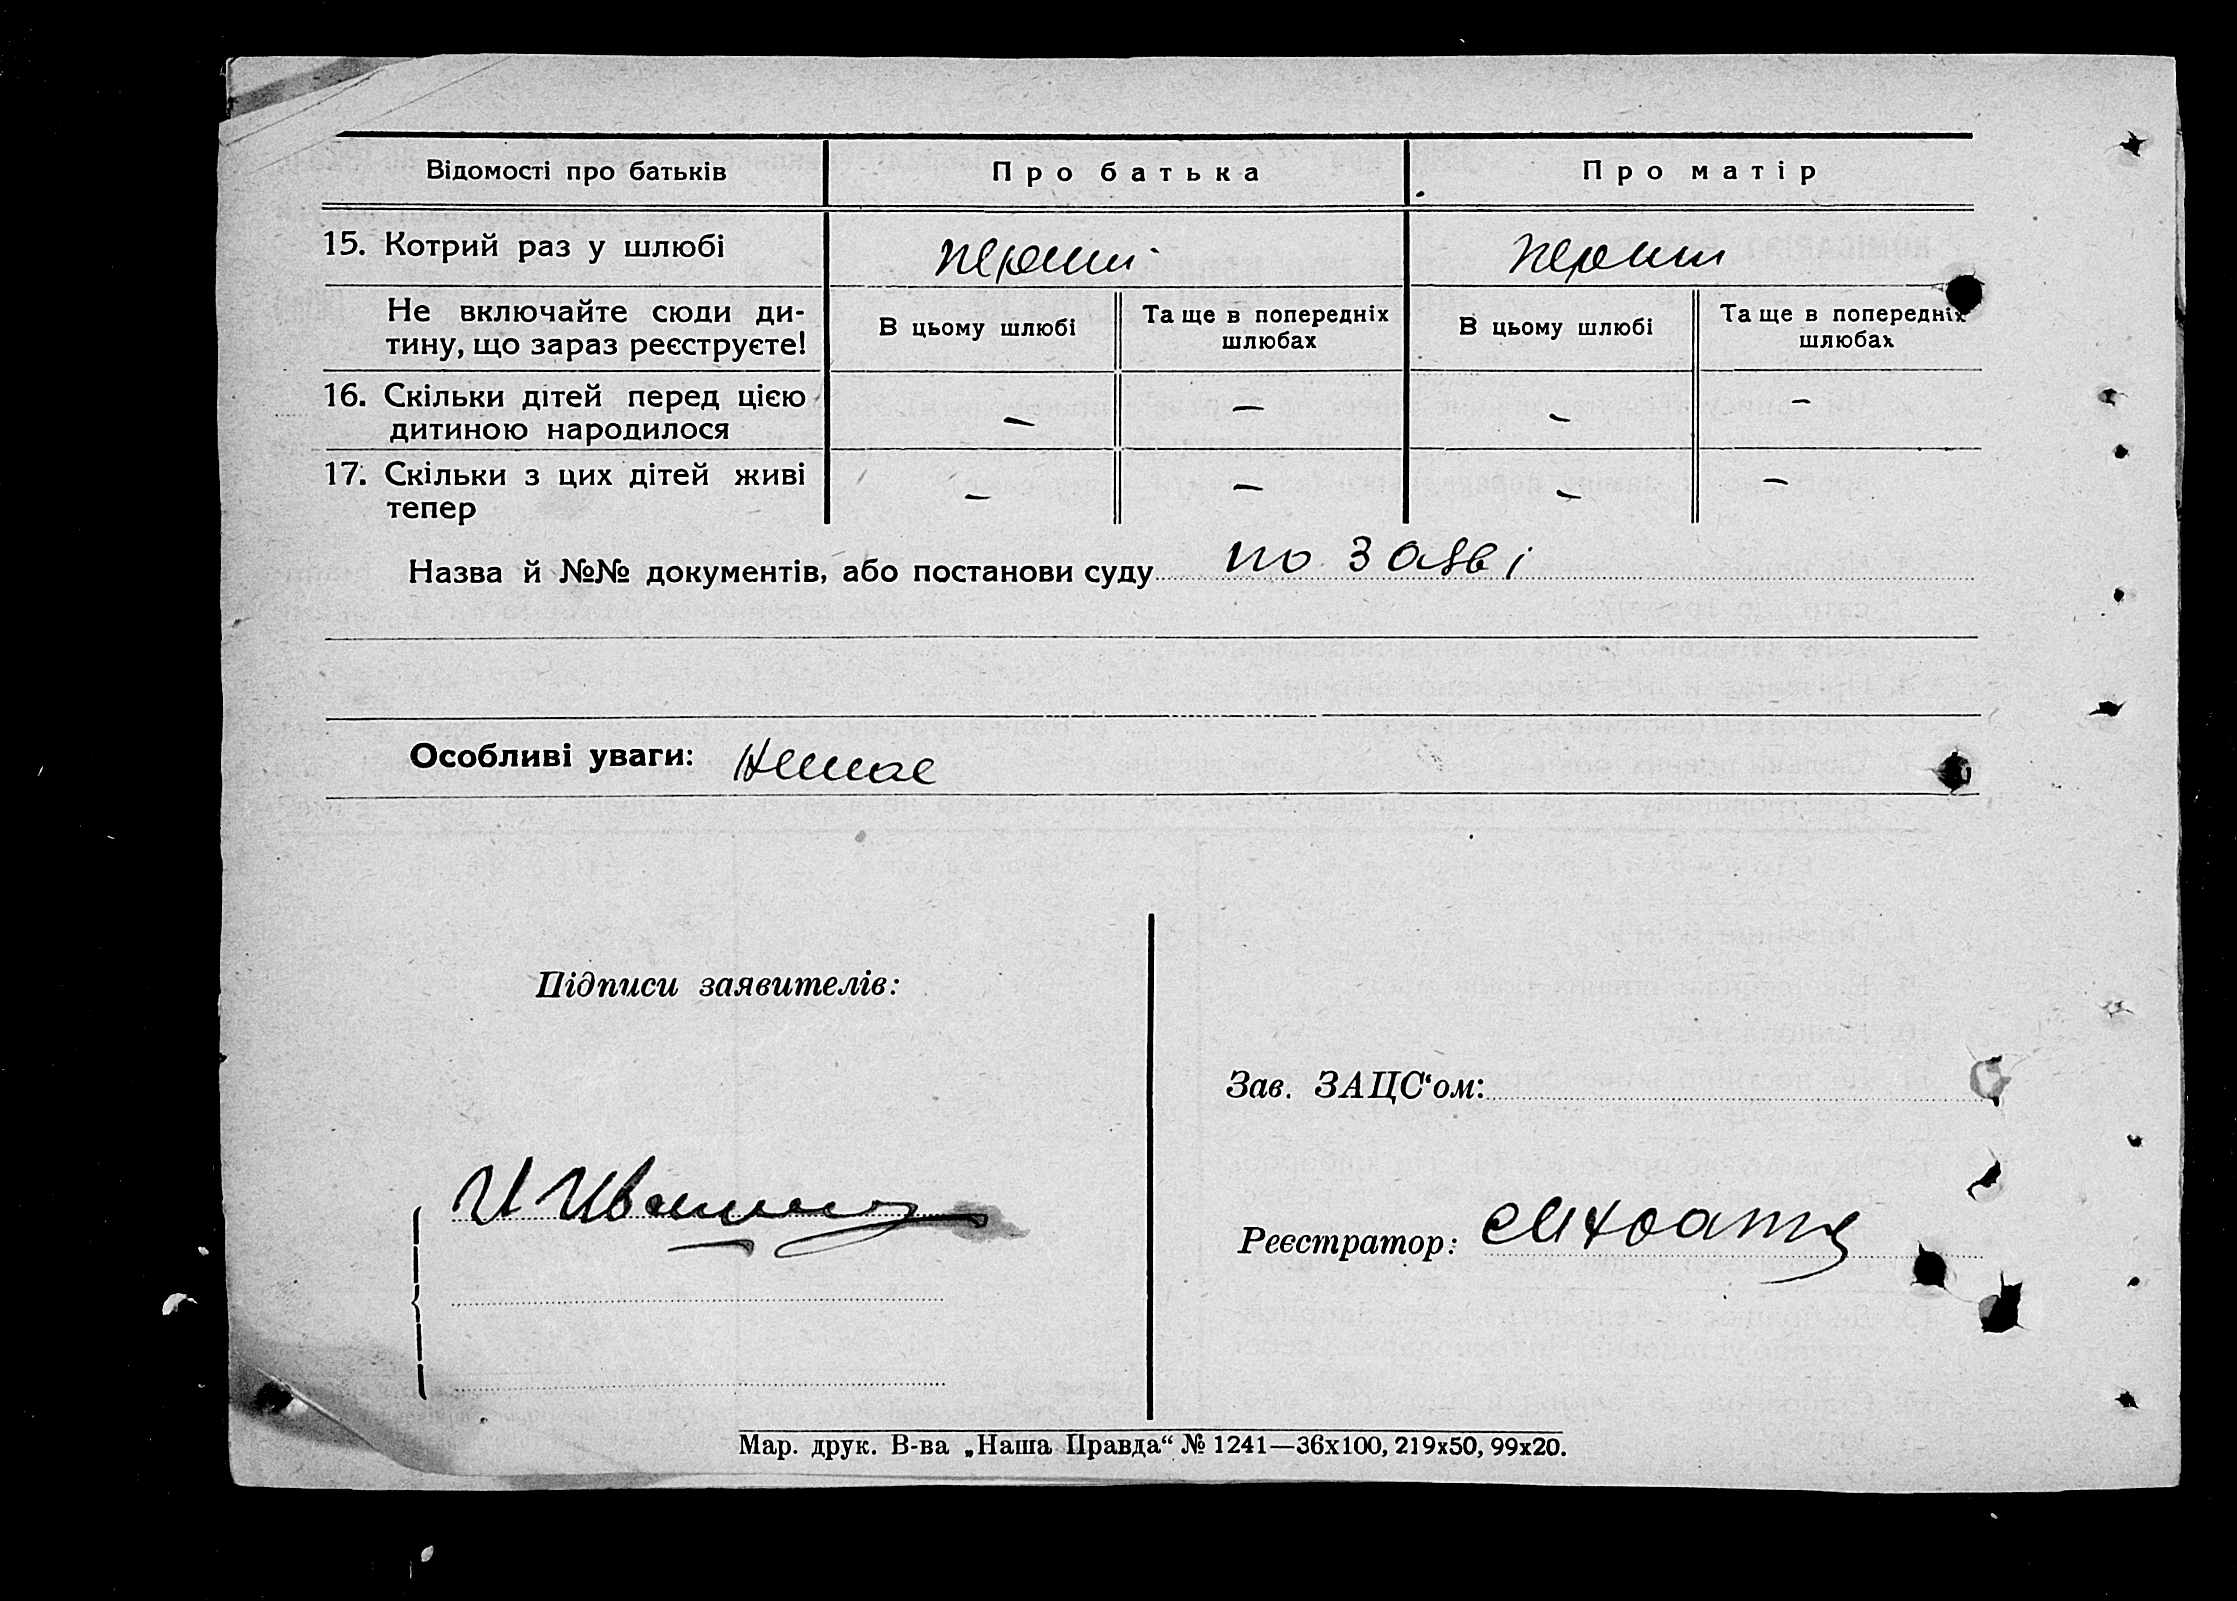 Відомості про батьків Про батька Про матір
15. Котрий раз у шлюбі перший перший
Не включайте сюди ди-
тину, що зараз реєструєте!
В цьому шлюбі
Та ще в попередніх
шлюбах
В цьому шлюбі
Та ще в попередніх
шлюбах
16. Скільки дітей перед цією
дитиною народилося
— — — —
17. Скільки з цих дітей живі
тепер
— — — —
Назва й №№ документів, або постанови суду по заяві
Особливі уваги: немає
Підписи заявителів:
Зав. ЗАЦС‘ом:
Реєстратор:
Мар. друк. В-ва „Наша Правда“ № 1241—36х100, 219х50, 99х20.